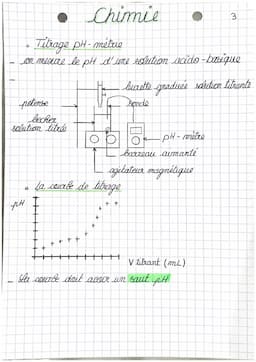 Chimie
3
Titrage pH-métrie
- on mesure le pH d'une solution acido-basique
burette graduée solution titrante
potence
sonde
becher
solution titrée
pH-mètre
barreau aimanté
agitateur magnétique
La courbe de titrage
pH
V titrant (mL)
courbe doit avoir un saut pH